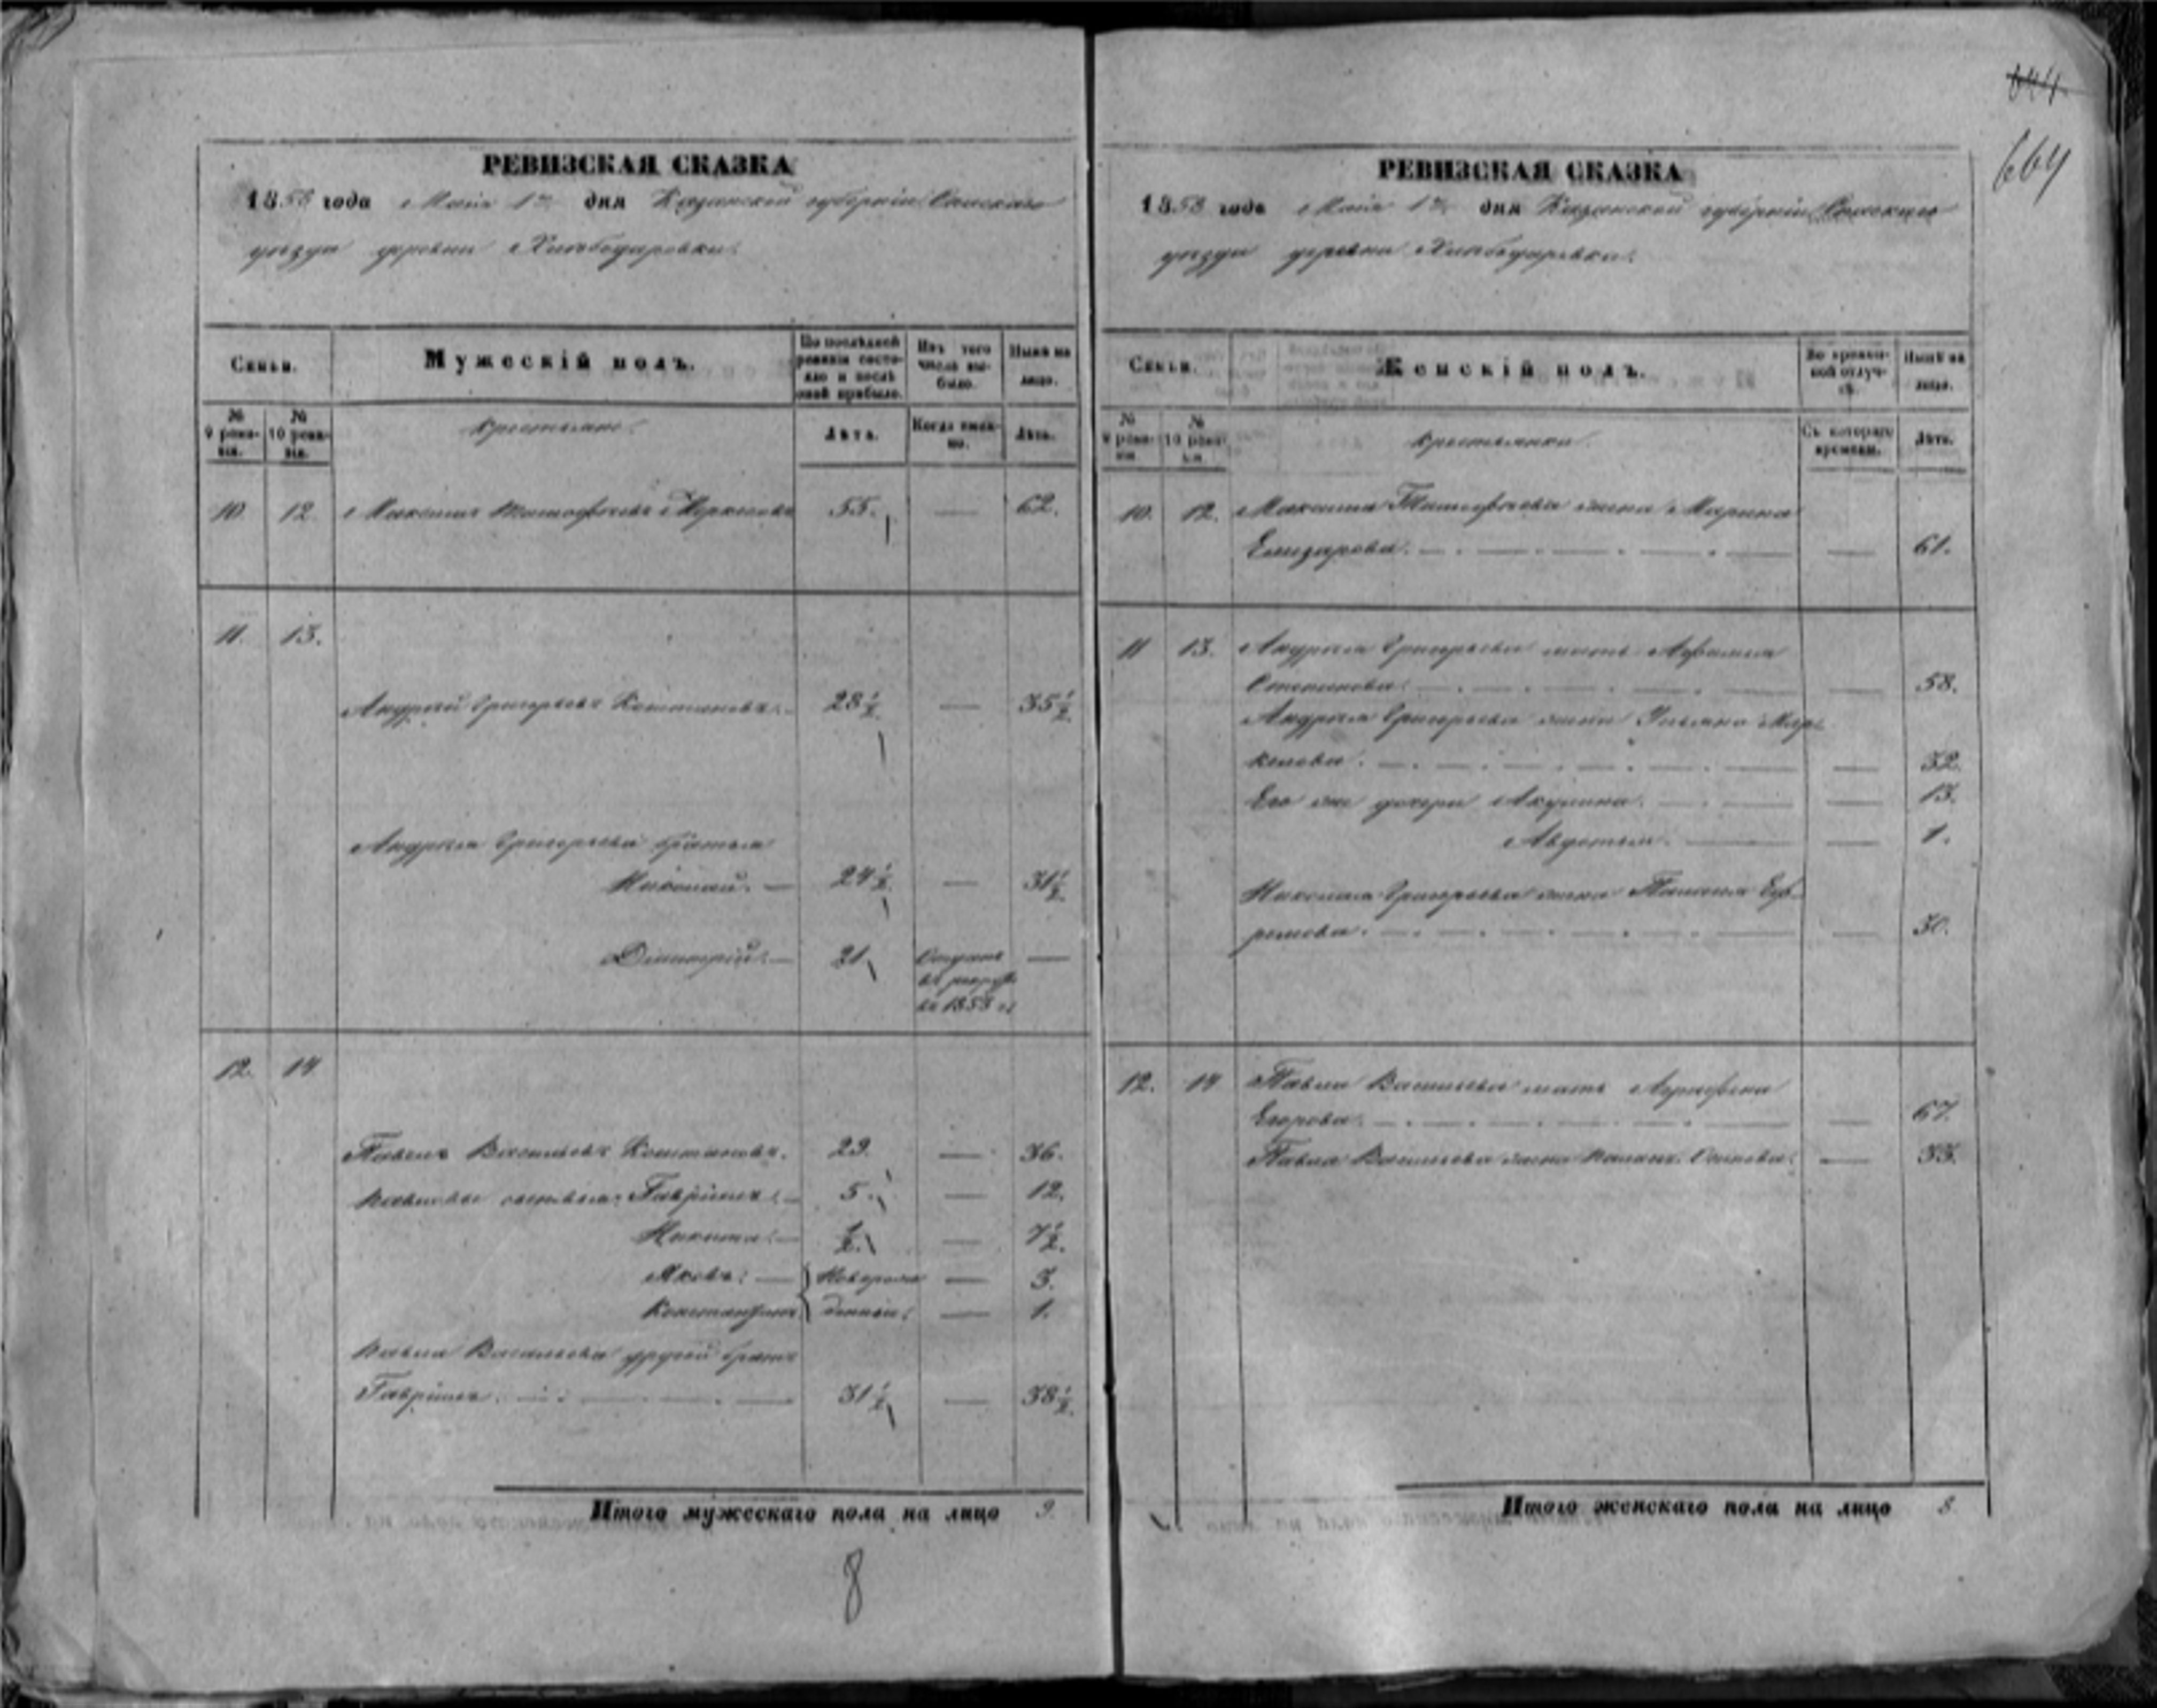 664
РЕВИЗСКАЯ СКАЗКА
1858 года Маія 1го дня Казанской губерніи Спасскаго
уѣзда деревни
Семьи.
Мужескій полъ.
По послѣдней ревизіи состояло и послѣ оной прибыло.
Изъ того числа выбыло.
Нынѣ на лицо.
№ 9 ревизіи.
№ 10 ревизіи.
Крестьяне.
Лѣта.
Когда именно.
Лѣта.
10. 12. Максимъ 55. — 62.
11. 13.
Андрей Григорьевъ Коштановъ. 28 1/2. — 35 1/2.
Андрея Григорьева братья
Николай. — 24 1/2. — 31 1/2.
Дмитрій. — 21 Отданъ —
въ рекруты
въ 1853 г.
12. 14
Павелъ Васильевъ Коштановъ. 29. — 36.
Павловы сыновья: Гаврiилъ. — 5. — 12.
Никита. — 1/2. — 7 1/2.
Яковъ. — Новорож — 3.
Константинъ денные. — 1.
Павла Васильева другой братъ
Гаврiилъ. — 31 1/2 — 38 1/2.
Итого мужескаго пола на лицо 9.
8
РЕВИЗСКАЯ СКАЗКА
1858 года Маія 1го дня Казанской губерніи Спасскаго
уѣзда деревни
Семьи.
Женскій полъ.
Во временной отлучкѣ.
Нынѣ на лицо.
№ 9 ревизіи.
№ 10 ревизіи.
Крестьянки.
Съ котораго времени.
Лѣта.
10. 12. Максима жена Марина
Елизарова. — — 61.
11 13. Андрея Григорьева мать
Степанова. — — 58.
Андрея Григорьева жена Ульяна Мар-
келова. — — 32.
Его же дочери Акулина. — — 13.
Авдотья. — — 1.
Николая Григорьева жена Еф-
ремова. — — 30.
12. 14 Павла Васильева мать Аграфена
Егорова. — — 67.
Павла Васильева жена Осипова. — 33.
Итого женскаго пола на лицо 8.